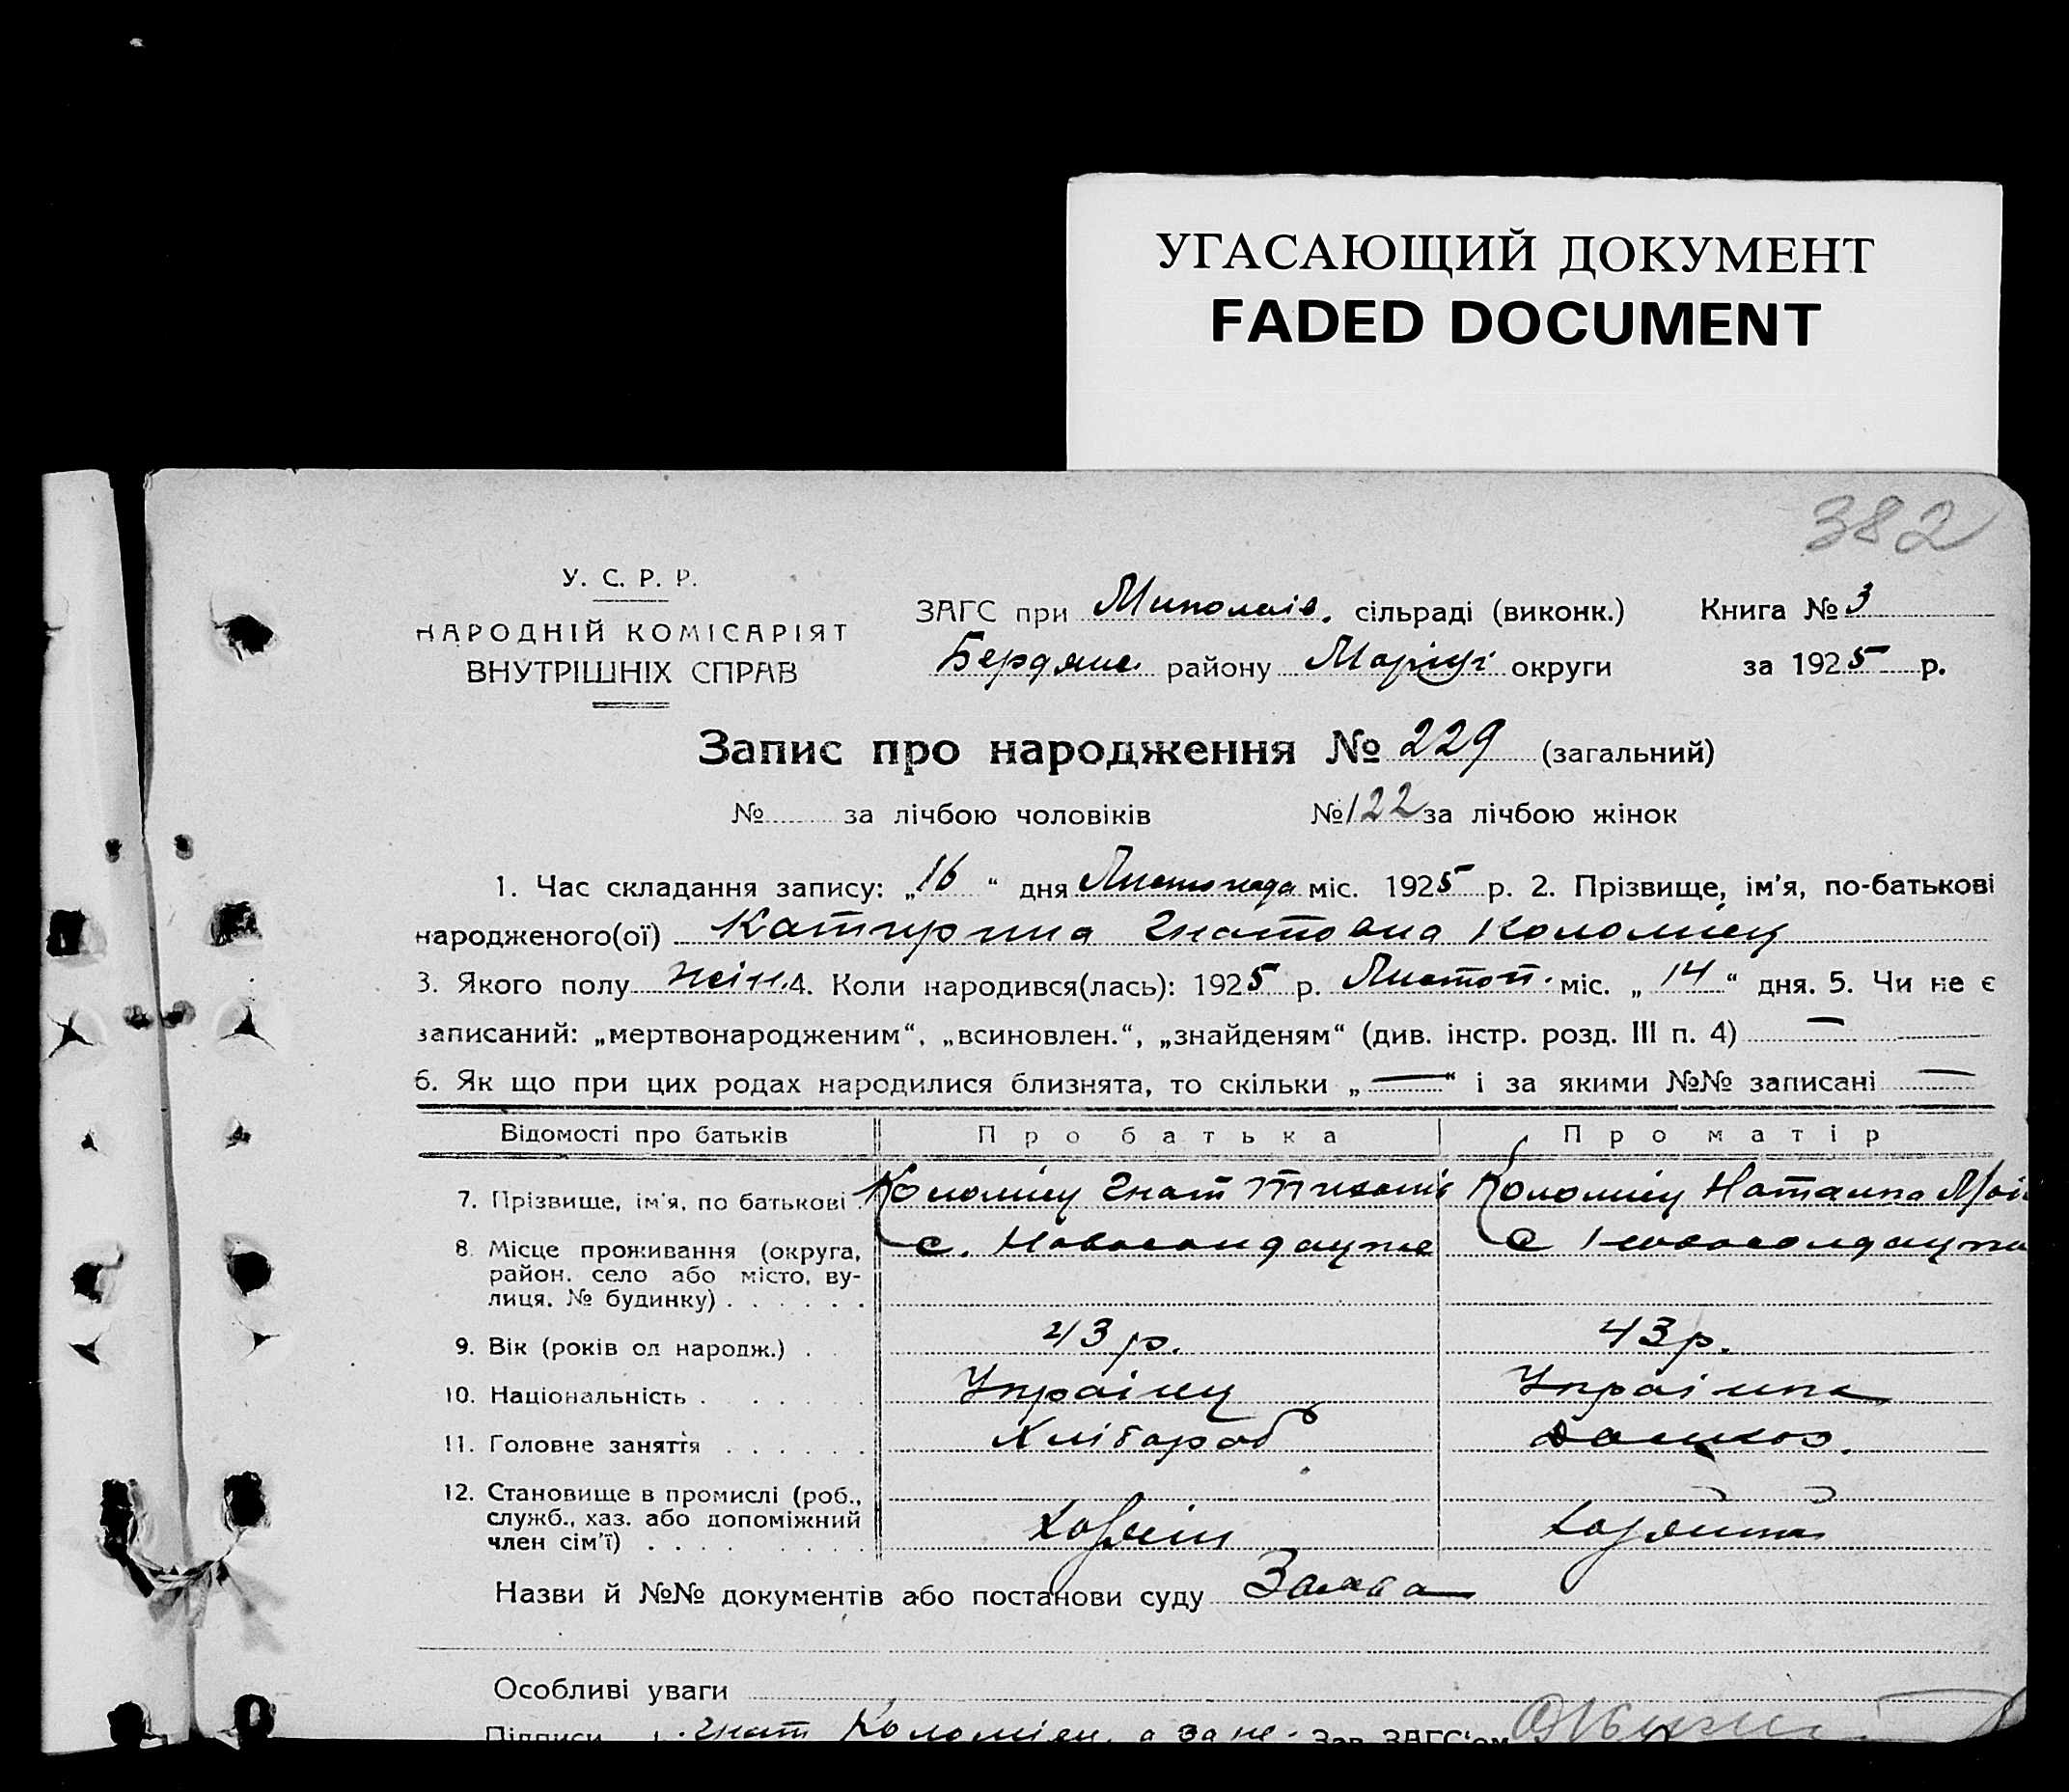 УГАСАЮЩИЙ ДОКУМЕНТ
FADED DOCUMENT
382
У. С. Р. Р.
НАРОДНІЙ КОМІСАРІЯТ
ВНУТРІШНІХ СПРАВ
ЗАГС при Миколаїв. сільраді (виконк.) Книга № 3
Бердянс. району Маріуп округи за 1925 р.
Запис про народження № 229 (загальний)
№ за лічбою чоловіків № 122 за лічбою жінок
1. Час складання запису: „16“ дня Листопада міс. 1925 р. 2. Прізвище, ім’я, по-батькові
народженого(ої) Катирина Гнатовна Коломієц
3. Якого полу жін. 4. Коли народився(лась): 1925 р. Листоп. міс. „14“ дня. 5. Чи не є
записаний: „мертвонародженим“, „всиновлен.“, „знайденям“ (див. інстр. розд. III п. 4) —
6. Як що при цих родах народилися близнята, то скільки „—“ і за якими №№ записані —
Відомості про батьків Про батька Про матір
7. Прізвище, ім’я, по батькові Коломієц Гнат Коломієц Наталка
8. Місце проживання (округа, с. с
район, село або місто, ву-
лиця, № будинку)
9. Вік (років од народж.) 43 р. 43 р.
10. Національність Українец Українка
11. Головне заняття Хлібороб
12. Становище в промислі (роб.,
служб., хаз. або допоміжний
член сім’ї) Хазяїн Хазяйка
Назви й №№ документів або постанови суду Заява
Особливі уваги
Підписи Гнат Коломієц, а за не Зав. ЗАГС’ом